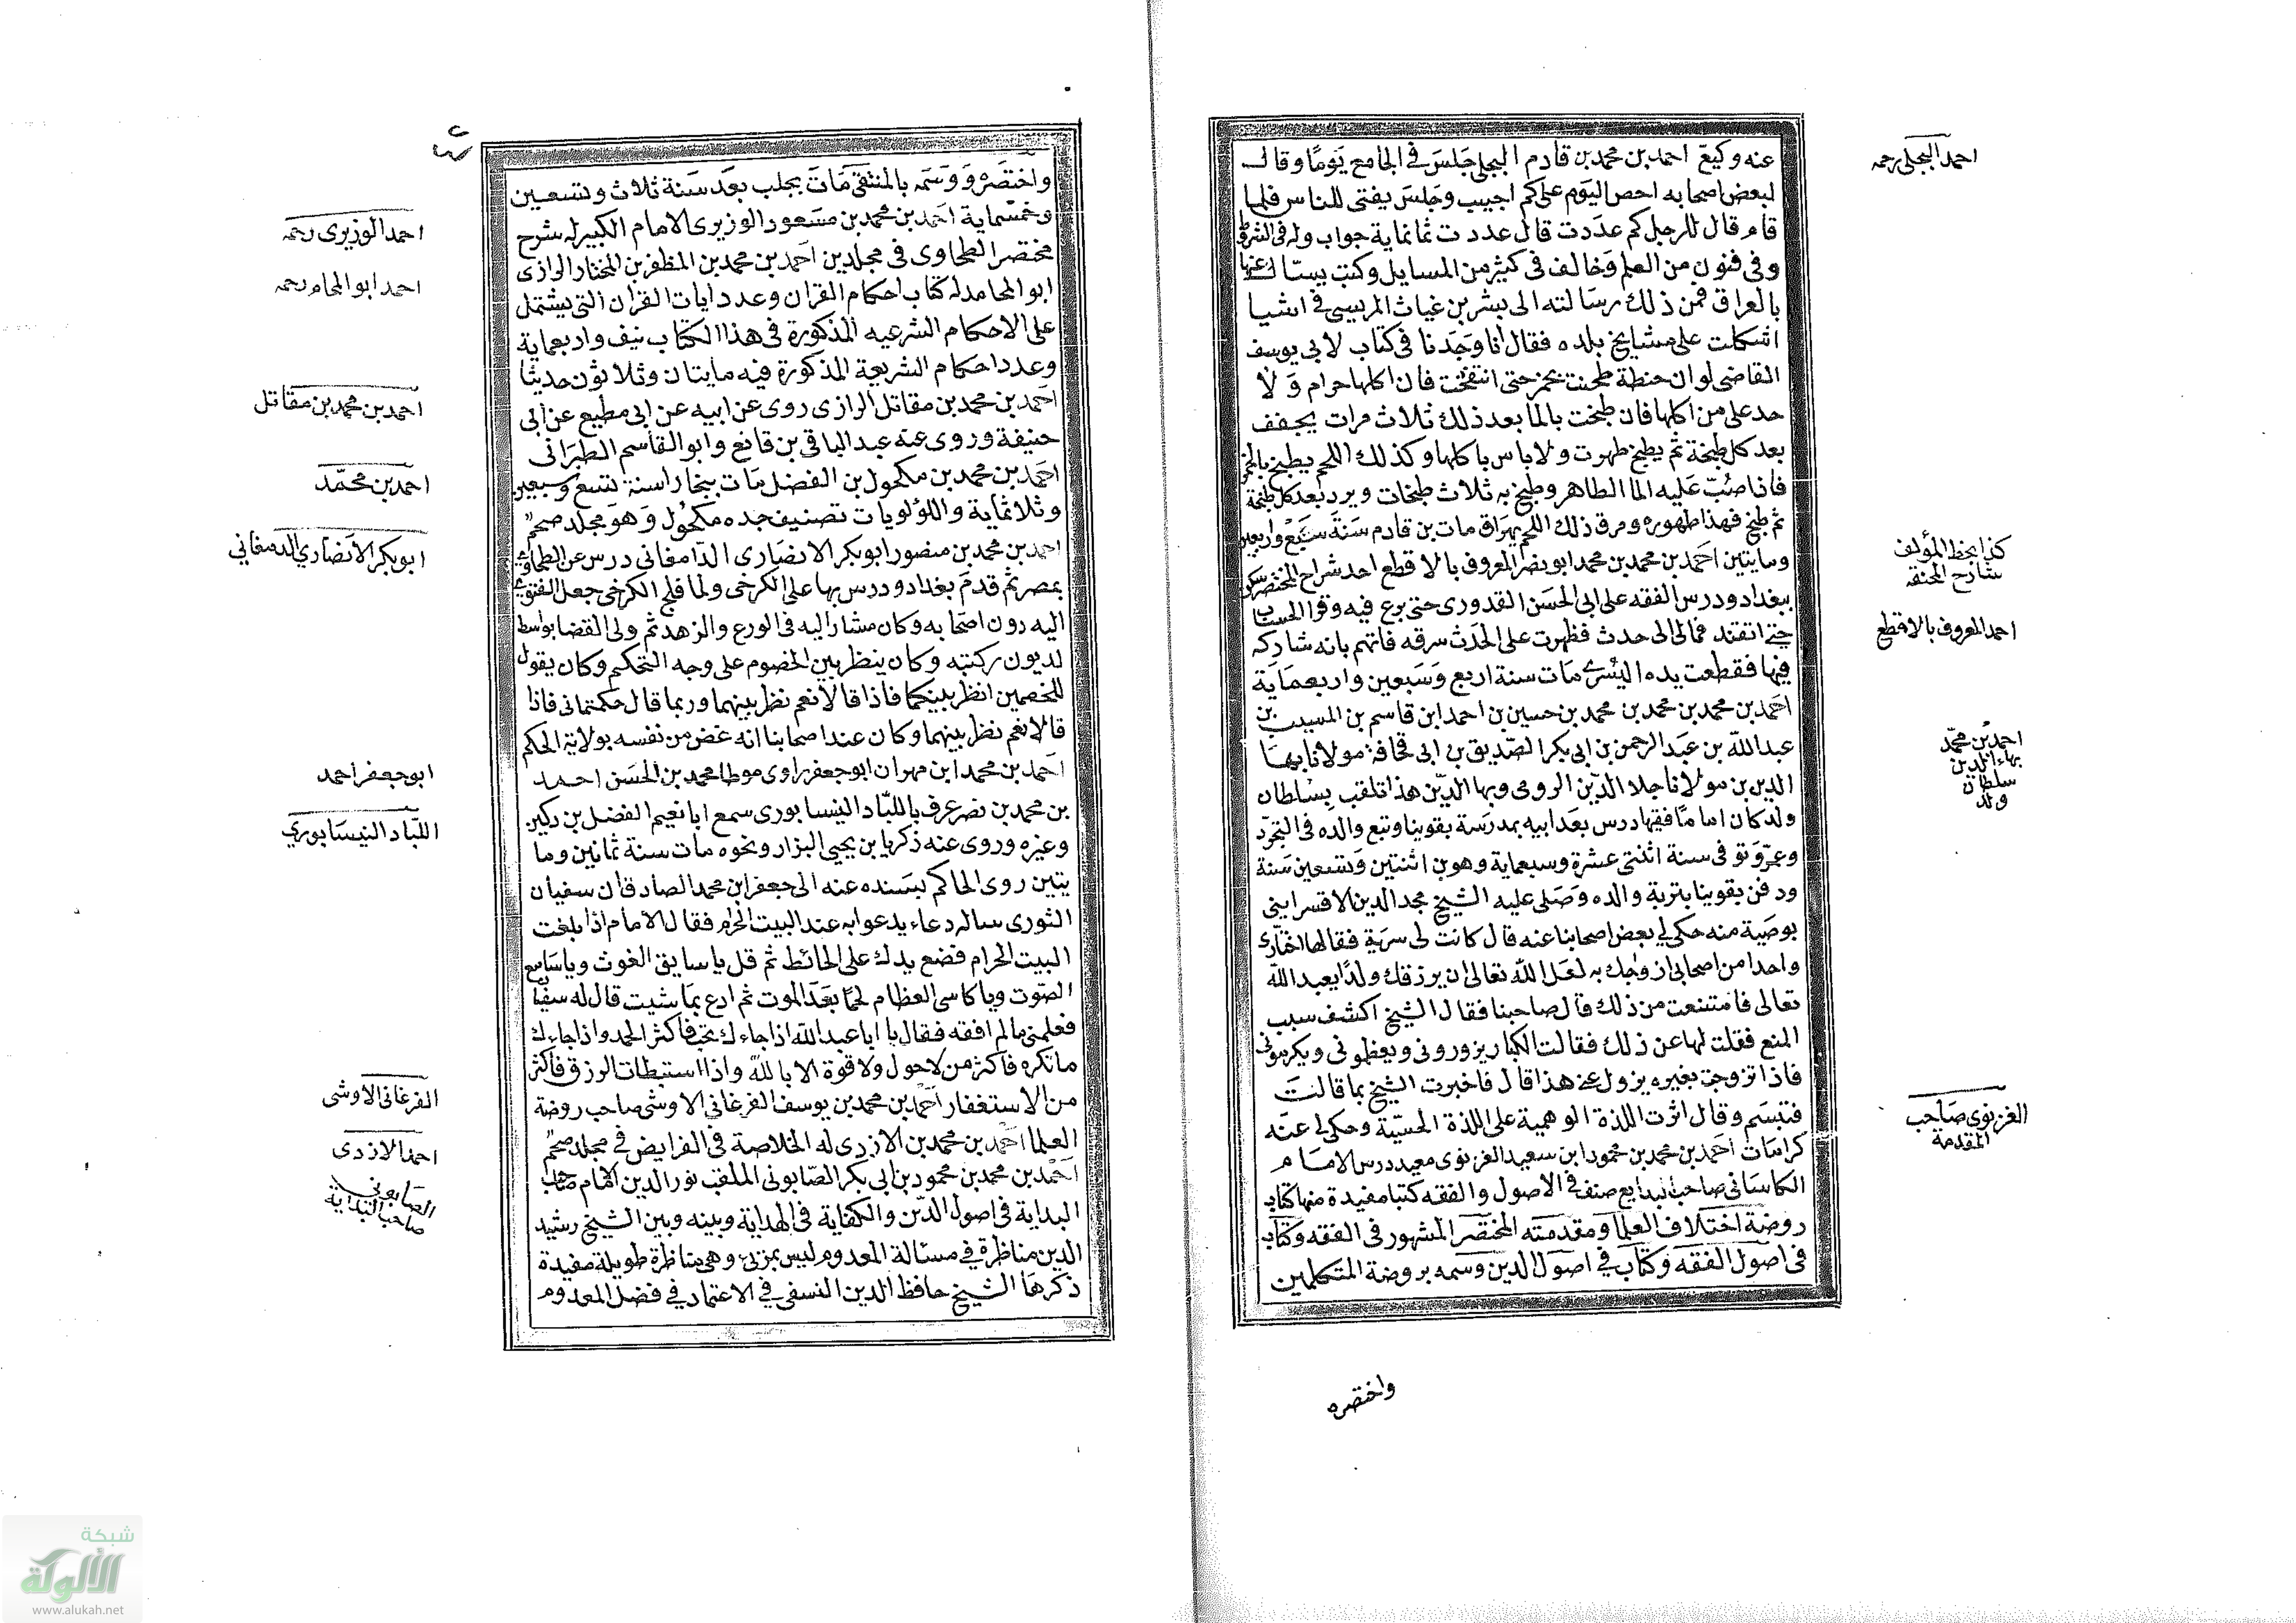 عنه وكيع احمد بن محمد بن قادم البجلى جلس فى الجامع يوما وقال
لبعض اصحابه احص اليوم على كم اجيب وجلس يفتى للناس فلما
قام قال للرجل كم عددت قال عددت ثمانماية جواب وله فى الشروط
وفى فنون من العلم وخالف فى كثير من المسايل وكتب يسال عنها
بالعراق فمن ذلك رسالته الى بشر بن غياث المريسى فى اشيا
اشكلت على مشايخ بلده فقال انا وجدنا فى كتاب لابى يوسف
القاضى لو ان حنطة طبخت بخمر حتى انتفخت فان اكلها حرام ولا
حد على من اكلها فان طبخت بالما بعد ذلك ثلاث مرات يجفف
بعد كل طبخة ثم يطبخ طهرت ولا باس باكلها وكذلك اللحم يطبخ بالخمر
فاذا صب عليه الما الطاهر وطبخ به ثلاث طبخات ويرد بعد كل طبخة
ثم طبخ فهذا طهوره ومرق ذلك اللحم يهراق مات بن قادم سنة سبع واربعين
ومايتين احمد بن محمد بن محمد ابو نضر المعروف بالاقطع احد شراح المختصر سكن
ببغداد ودرس الفقه على ابى الحسن القدورى حتى برع فيه وقرا الحساب
حتى اتقنه فمال الى حدث فظهرت على الحدث سرقه فاتهم بانه شاركه
فيها فقطعت يده اليسرى مات سنة اربع وسبعين واربعماية
احمد بن محمد بن محمد بن محمد بن حسين بن احمد ابن قاسم بن المسيب بن
عبد الله بن عبد الرحمن بن ابى بكر الصديق بن ابى قحافة مولانا بها
الدين بن مولانا جلا الدين الرومى وبها الدين هذا تلقب بسلطان
ولد كان اماما فقيها درس بعد ابيه بمدرسة بقوينا وتبع والده فى التجرد
وعمر وتو فى سنة اثنتى عشرة وسبعماية وهو بن اثنتين وتسعين سنة
ودفن بقوينا بتربة والده وصلى عليه الشيخ مجد الدين الاقسراينى
بوصية منه حكى لى بعض اصحابنا عنه قال كانت لى سرية فقال لها اختارى
واحدا من اصحابى ازوجك به لعل الله تعالى ان يرزقك ولدا يعبد الله
تعالى فامتنعت من ذلك قال صاحبنا فقال الشيخ اكشف سبب
المنع فقلت لها عن ذلك فقالت الكبار يزورونى ويعظمونى ويكرمونى
فاذا تزوجت بغيره يزول عنى هذا قال فاخبرت الشيخ بما قالت
فتبسم وقال اثرت اللذة الوهمية على اللذة الحسية وحكى لى عنه
كرامات احمد بن محمد بن محمود ابن سعيد الغزنوى معيد درس الامام
الكاسانى صاحب البدايع صنف فى الاصول والفقه كتبا مفيدة منها كتاب
روضة اختلاف العلما ومقدمته المختصر المشهور فى الفقه وكتاب
فى اصول الفقه وكتاب فى اصول الدين وسمه بروضة المتكلمين
واختصره
احمد البجلى رحمه
كذا بخط المؤلف
شارح المختصر
احمد المعروف بالاقطع
احمد بن محمد
بهاء الدين
سلطان
ولد
الغزنوى صاحب
المقدمة
واختصره ووسمه بالمنتقى مات بحلب بعد سنة ثلاث وتسعين
وخمسماية احمد بن محمد بن مسعود الوزيرى الامام الكبير له شرح
مختصر الطحاوى فى مجلدين احمد بن محمد بن المظفر بن المختار الرازى
ابو المحامد له كتاب احكام القران وعدد ايات القران التى يشتمل
على الاحكام الشرعيه المذكورة فى هذا الكتاب نيف واربعماية
وعدد احكام الشريعة المذكورة فيه مايتان وثلاثون حديثا
احمد بن محمد بن مقاتل الرازى روى عن ابيه عن ابى مطيع عن ابى
حنيفة وروى عنه عبد الباقى بن قانع وابو القاسم الطبرانى
احمد بن محمد بن مكحول بن الفضل مات ببخارا سنة تسع وسبعين
وثلاثماية واللؤلويات تصنيف جده مكحول وهو مجلد ضخم
احمد بن محمد بن منصور ابو بكر الانصارى الدامغانى درس عن الطحاوى
بمصر ثم قدم بغداد ودرس بها على الكرخى ولما فلج الكرخى جعل الفتوى
اليه دون اصحابه وكان مشارا اليه فى الورع والزهد ثم ولى القضا بواسط
لديون ركبته وكان ينظر بين الخصوم على وجه التحكم وكان يقول
للخصمين انظر بينكما فاذا قالا نعم نظر بينهما وربما قال حكمتمانى فاذا
قالا نعم نظر بينهما وكان عند اصحابنا انه غض من نفسه بولاية الحكم
احمد بن محمد ابن مهران ابو جعفر راوى موطا محمد بن الحسن احمد
بن محمد بن نصر عرف باللباد النيسابورى سمع ابا نعيم الفضل بن دكين
وغيره وروى عنه ذكريا بن يحيى البزار ونحوه مات سنة ثمانين وما
يتين روى الحاكم بسنده عنه الى جعفر ابن محمد الصادق ان سفيان
الثورى ساله دعاء يدعوا به عند البيت الحرام فقال الامام اذا بلغت
البيت الحرام فضع يدك على الحائط ثم قل يا سايق الغوث ويا سامع
الصوت ويا كاسى العظام لحما بعد الموت ثم ادع بما شيت قال له سفيان
فعلمنى ما لم افقه فقال يا ابا عبد الله اذا جاءك ما تحب فاكثر الحمد واذا جاءك
ما تكره فاكثر من لا حول ولا قوة الا بالله واذا استبطات الرزق فاكثر
من الاستغفار احمد بن محمد بن يوسف الفرغانى الاوشى صاحب روضة
العلما احمد بن محمد بن الازدى له الخلاصة فى الفرايض فى مجلد ضخم
احمد بن محمد بن محمود بن ابى بكر الصابونى الملقب نور الدين الامام صاحب
البداية فى اصول الدين والكفاية فى الهداية وبينه وبين الشيخ رشيد
الدين مناظرة فى مسئالة المعدوم ليس بمرئى وهى مناظرة طويلة مفيدة
ذكرها الشيخ حافظ الدين النسفى فى الاعتماد فى فضل المعدوم
احمد الوزيرى رحمه
احمد ابو المحامد رحمه
احمد بن محمد بن مقاتل
احمد بن محمد
ابو بكر الانصاري الدامغاني
ابو جعفر احمد
اللباد النيسابوري
الفرغانى الاوشى
احمد الازدى
الصابونى
صاحب البداية
شبكة
الألوكة
www.alukah.net